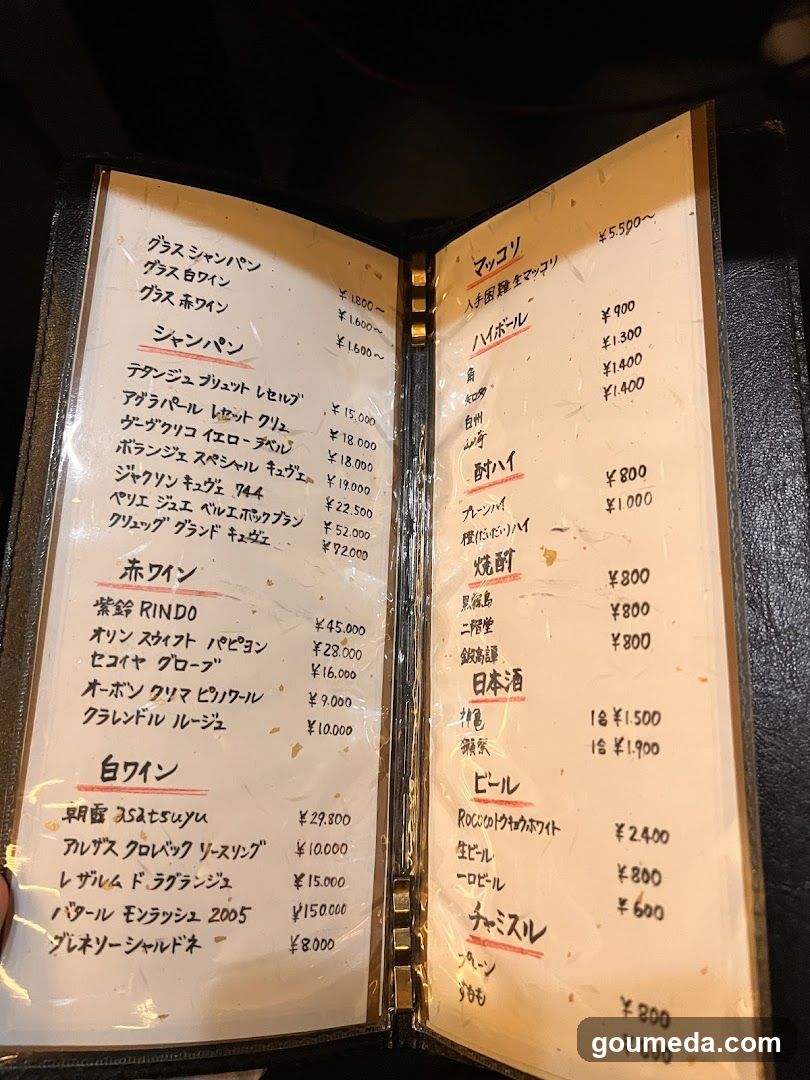 グラス シャンパン ¥1.800〜
グラス 白ワイン ¥1.600〜
グラス 赤ワイン ¥1.600〜
シャンパン
テタンジュ ブリュット レセルブ ¥15,000
アグラパール レセット クリュ ¥18.000
ヴーヴクリコ イエローラベル ¥18.000
ボランジェ スペシャル キュヴェ ¥19.000
ジャクソン キュヴェ 744 ¥22.500
ペリエ ジュエ ベルエポックブラン ¥52.000
クリュッグ グランド キュヴェ ¥72000
赤ワイン
紫鈴 RINDO ¥45.000
オリン スウィフト パピヨン ¥28.000
セコイヤ グローブ ¥16.000
オーボン クリマ ピノノワール ¥9.000
クラレンドル ルージュ ¥10.000
白ワイン
朝露 asatsuyu ¥29.800
アルザス クロレベック リースリング ¥10.000
レザルム ド ラグランジュ ¥15.000
バタール モンラッシュ 2005 ¥150.000
グレネソーシャルドネ ¥8.000
マッコリ
入手困難生マッコリ ¥5.500〜
ハイボール
角 ¥900
知多 ¥1.300
白州 ¥1.400
山崎 ¥1.400
酎ハイ
プレーンハイ ¥800
橙(だいだい)ハイ ¥1.000
焼酎
黒霧島 ¥800
二階堂 ¥800
鍛高譚 ¥800
日本酒
神亀 1合 ¥1.500
獺祭 1合 ¥1.900
ビール
Rococoトウキョウホワイト ¥2.400
生ビール ¥800
一口ビール ¥600
チャミスル
プレーン ¥800
すもも
goumeda.com